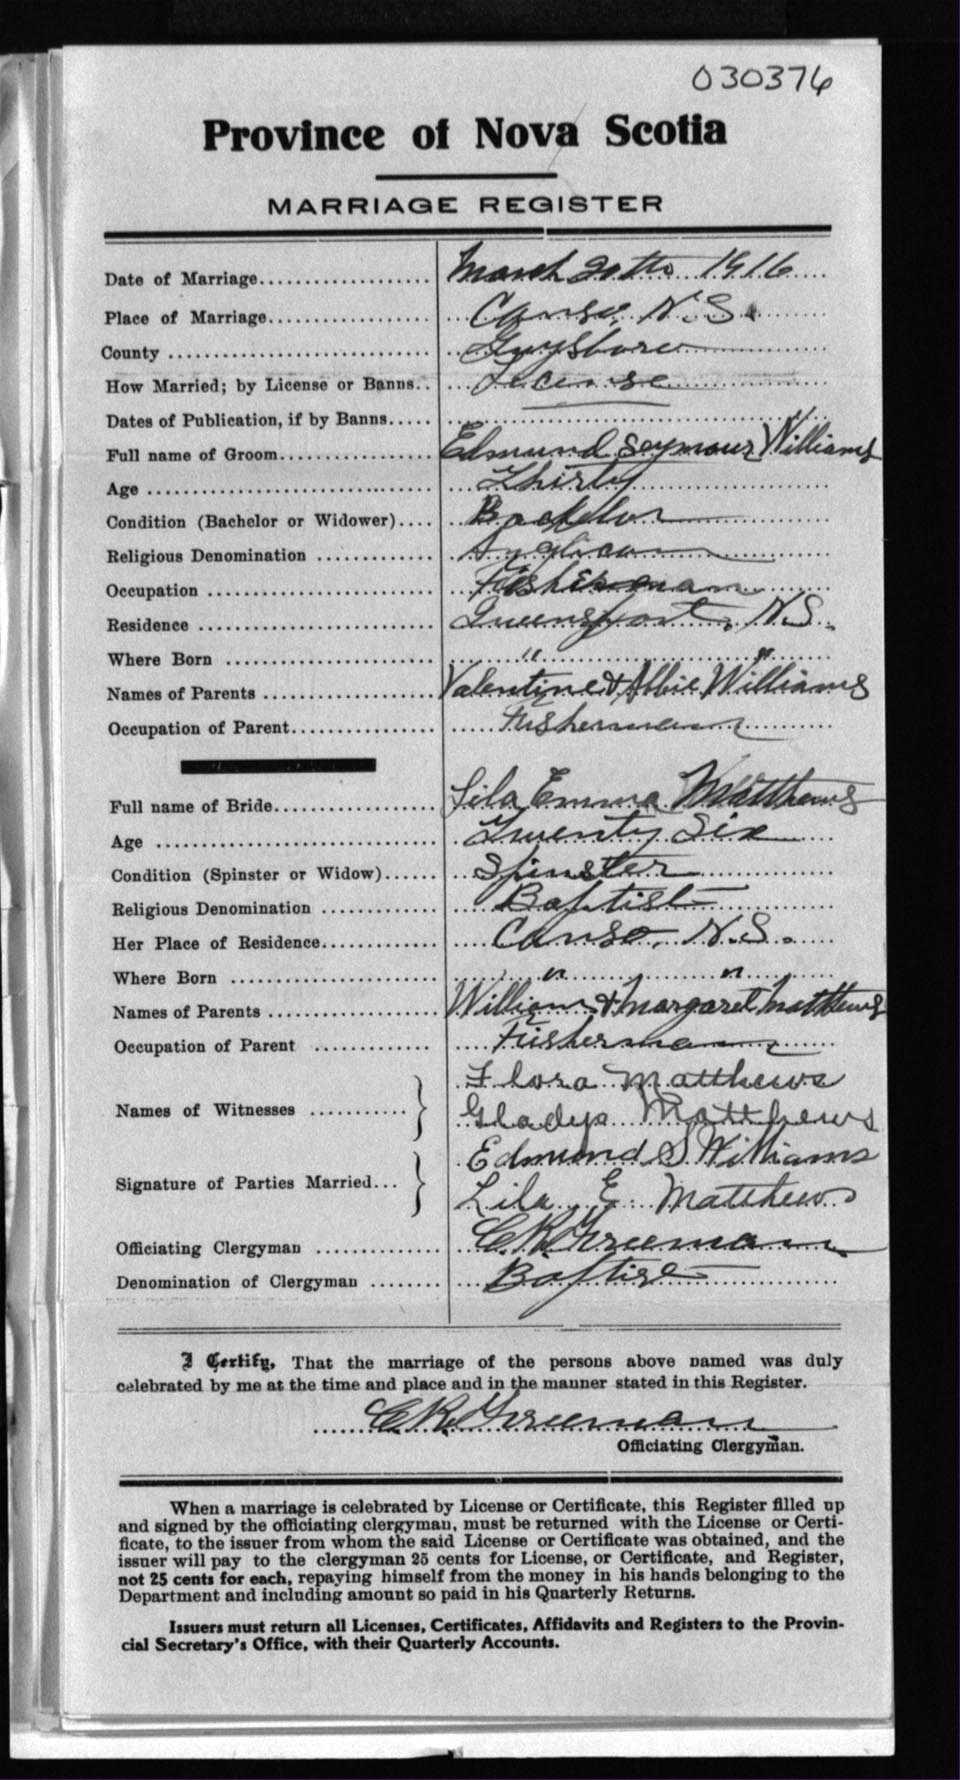 030376
Province of Nova Scotia
MARRIAGE REGISTER
Date of Marriage.................... March 20th 1916
Place of Marriage................... Canso, N.S.
County ............................. Guysboro
How Married; by License or Banns.. License
Dates of Publication, if by Banns.....
Full name of Groom................. Edmund Seymour Williams
Age ................................ Thirty
Condition (Bachelor or Widower).... Bachelor
Religious Denomination ............. Anglican
Occupation ......................... Fisherman
Residence .......................... Queensport, N.S.
Where Born ........................ " "
Names of Parents ................... Valentine & Abbie Williams
Occupation of Parent................ Fisherman
Full name of Bride.................. Lila Emma Matthews
Age ................................ Twenty Six
Condition (Spinster or Widow)...... Spinster
Religious Denomination ............. Baptist
Her Place of Residence............. Canso, N.S.
Where Born ........................ " "
Names of Parents ................... William & Margaret Matthews
Occupation of Parent ............. Fisherman
Names of Witnesses ........... } Flora Matthews
Gladys Matthews
Signature of Parties Married... } Edmund S Williams
Lila E. Matthews
Officiating Clergyman .............. C.R. Freeman
Denomination of Clergyman ........ Baptist
I Certify, That the marriage of the persons above named was duly
celebrated by me at the time and place and in the manner stated in this Register.
C.R. Freeman
Officiating Clergyman.
When a marriage is celebrated by License or Certificate, this Register filled up
and signed by the officiating clergyman, must be returned with the License or Certi-
ficate, to the issuer from whom the said License or Certificate was obtained, and the
issuer will pay to the clergyman 25 cents for License, or Certificate, and Register,
not 25 cents for each, repaying himself from the money in his hands belonging to the
Department and including amount so paid in his Quarterly Returns.
Issuers must return all Licenses, Certificates, Affidavits and Registers to the Provin-
cial Secretary's Office, with their Quarterly Accounts.